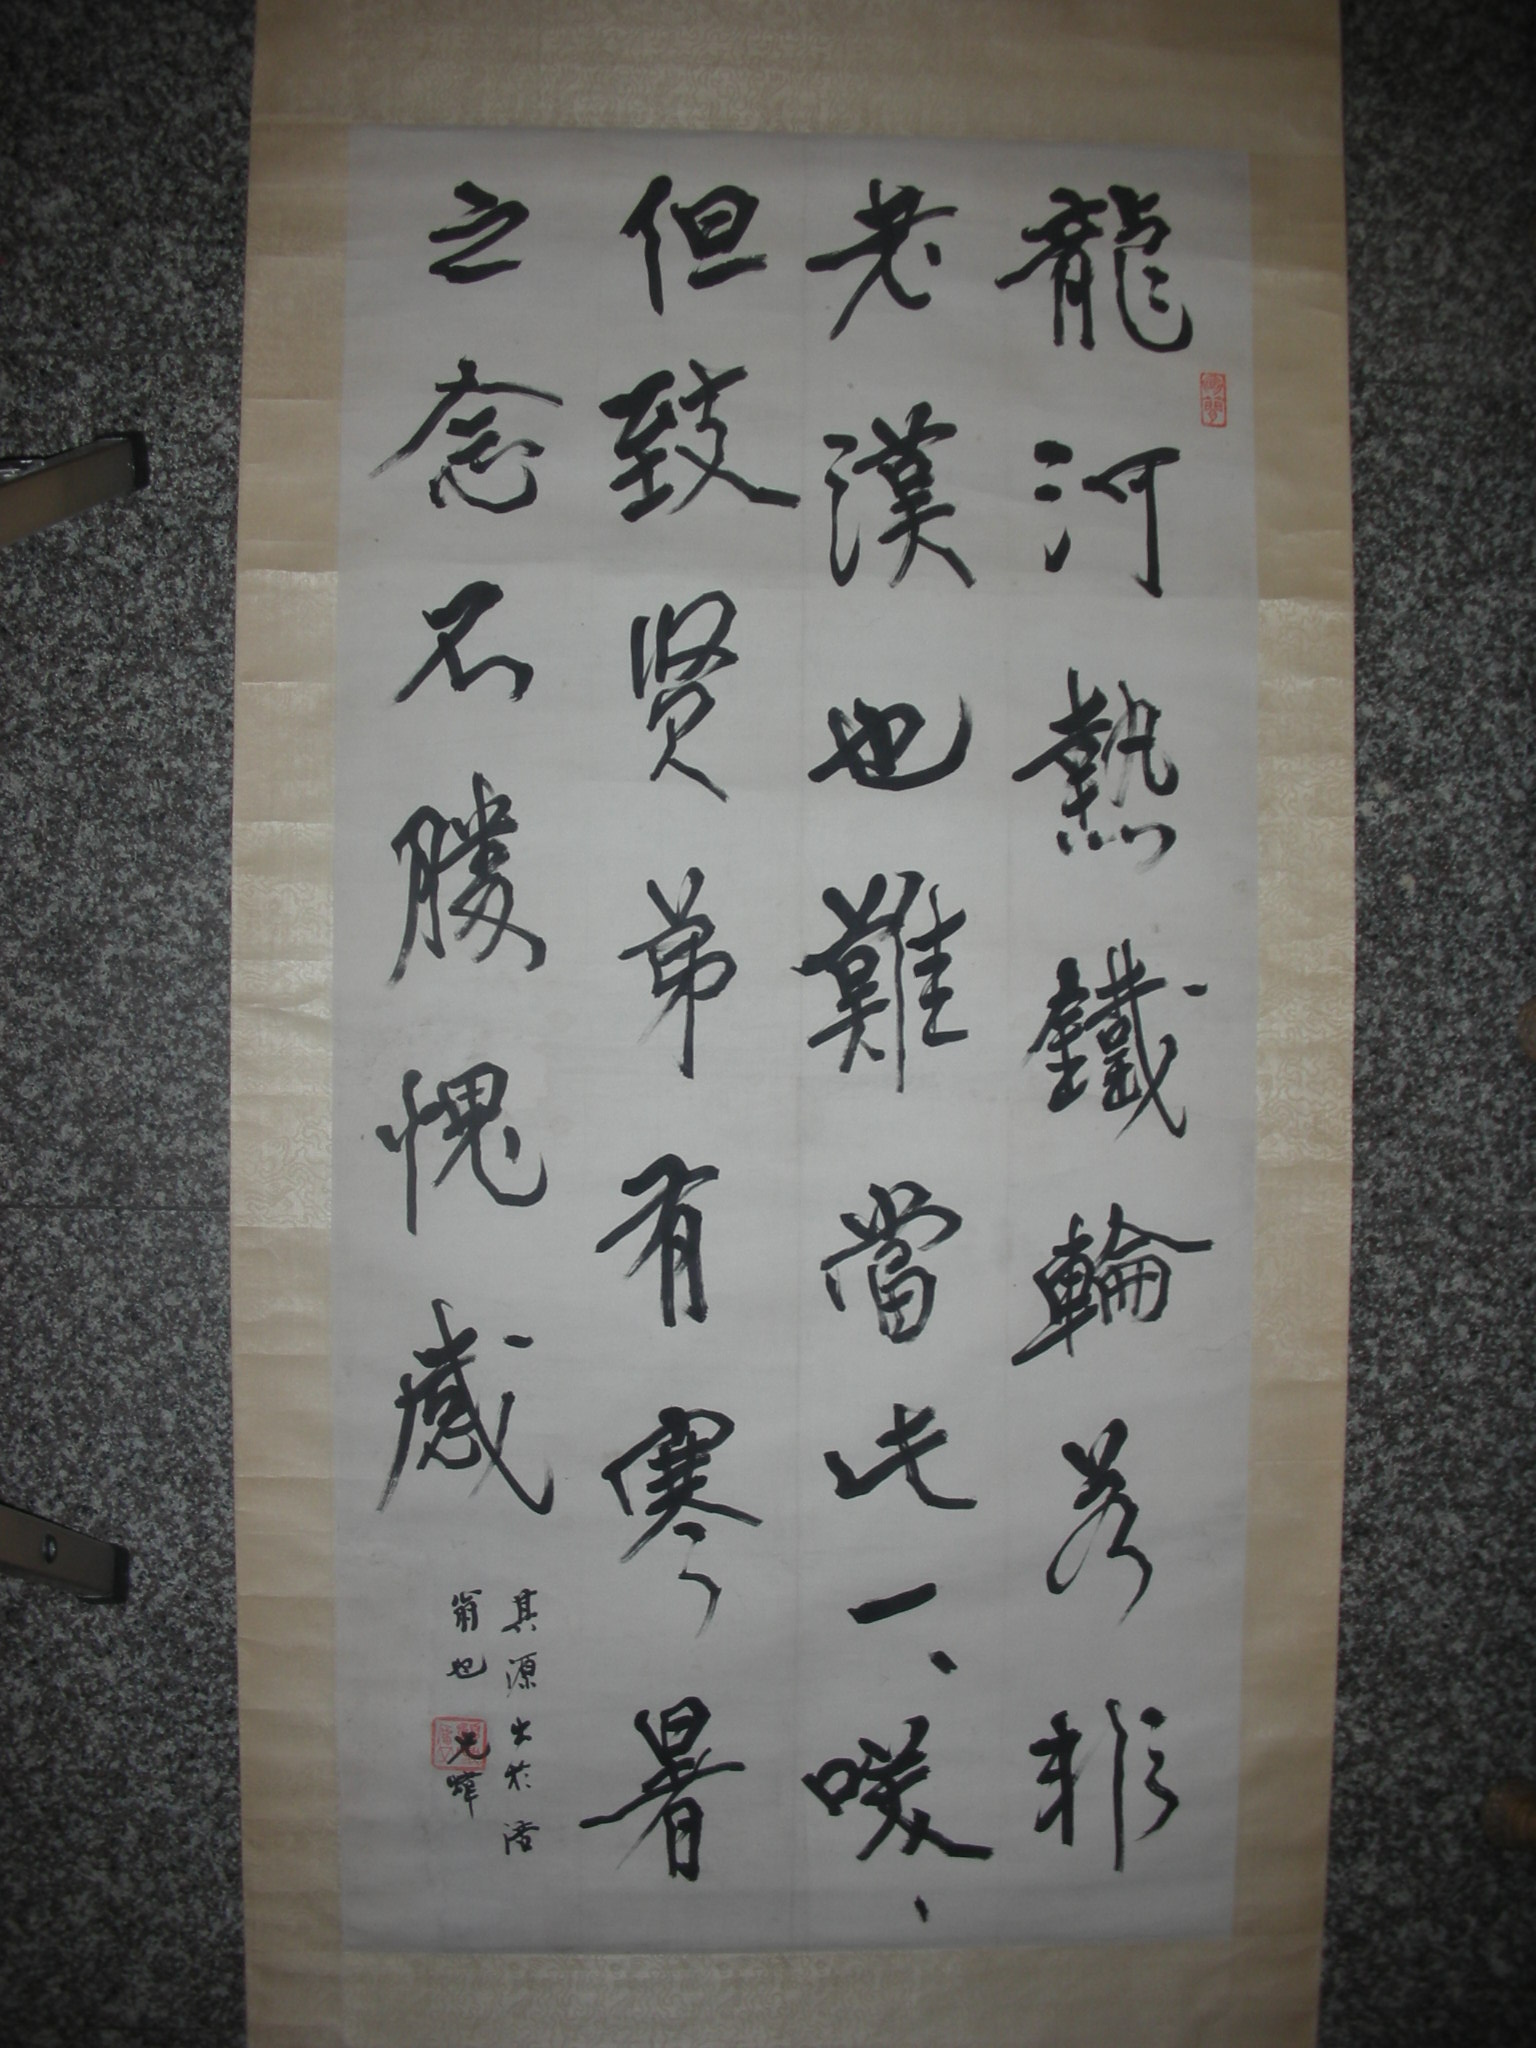 龍河熱鐵輪若非
老漢也難當此一、咲、
但致贤弟有寒暑
之念不勝愧感
其源出於涪
翁也 元暉